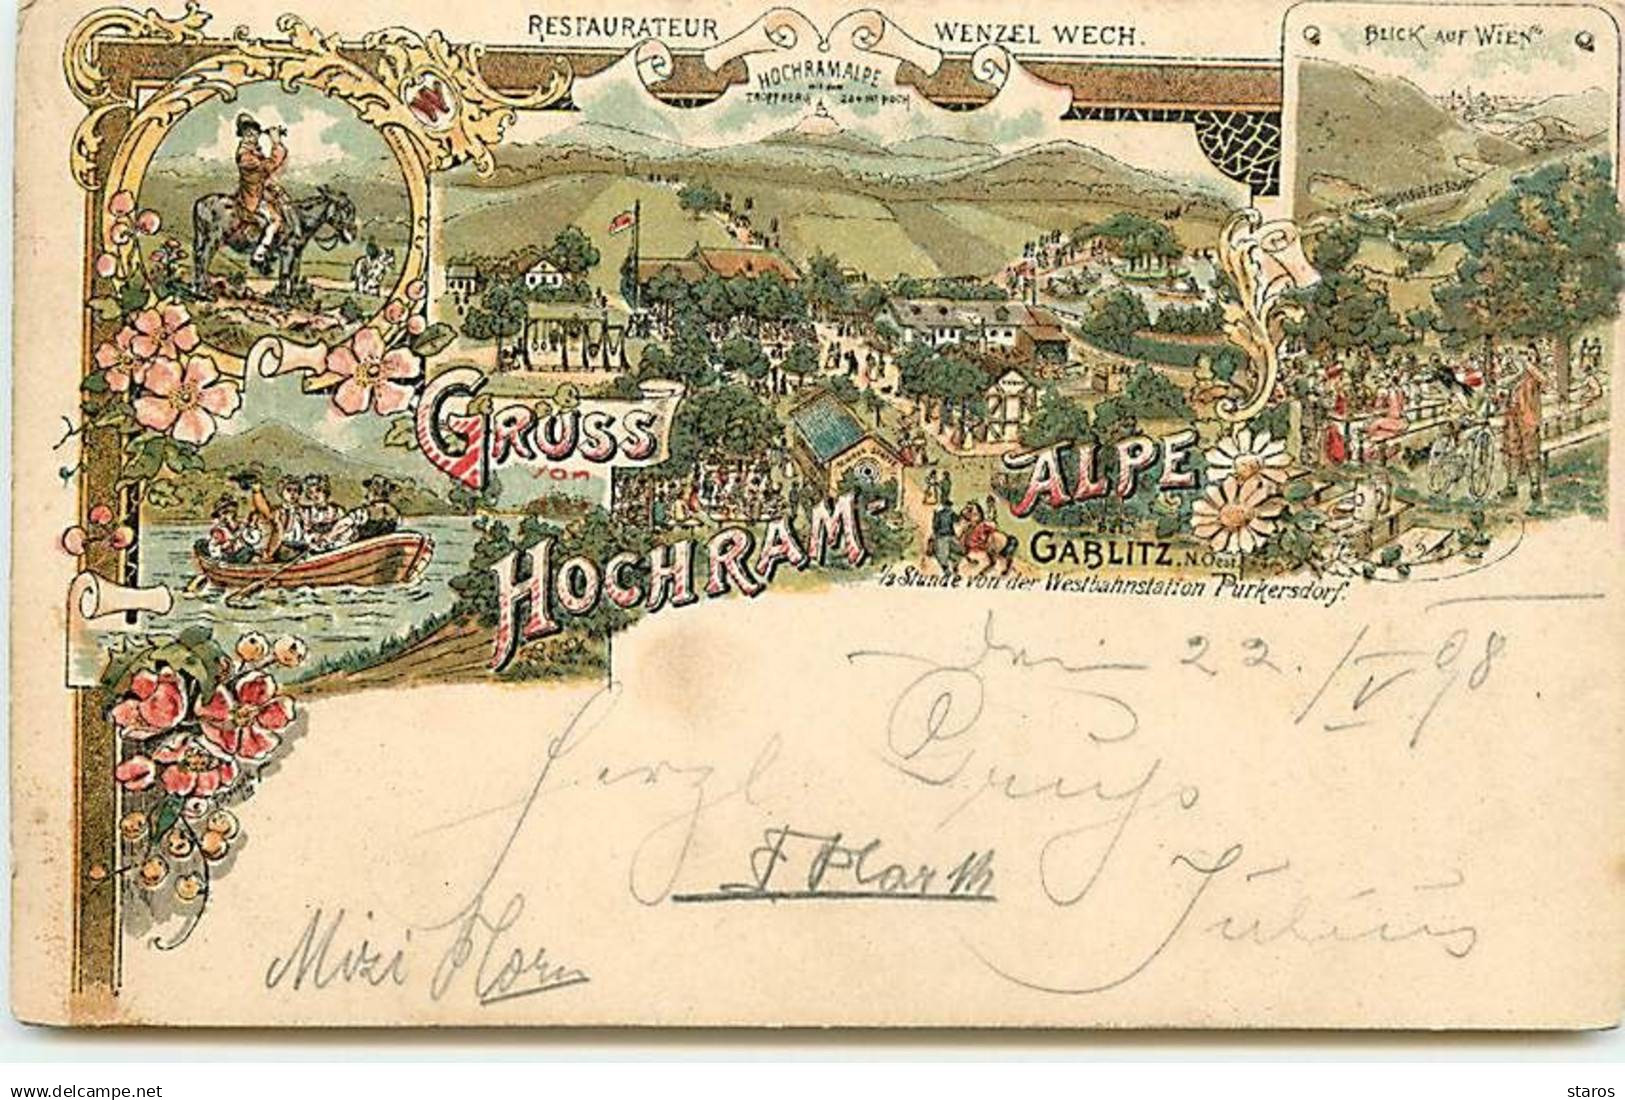 RESTAURATEUR WENZEL WECH.
HOCHRAMALPE
BLICK AUF WIEN
W
GRUSS
von
HOCHRAM-
ALPE
bei
GABLITZ. N. Oest.
1/2 Stunde von der Westbahnstation Purkersdorf.
den 22./V 98
Herzl. Gruß
Julius
Mizi
delcampe.net
staros